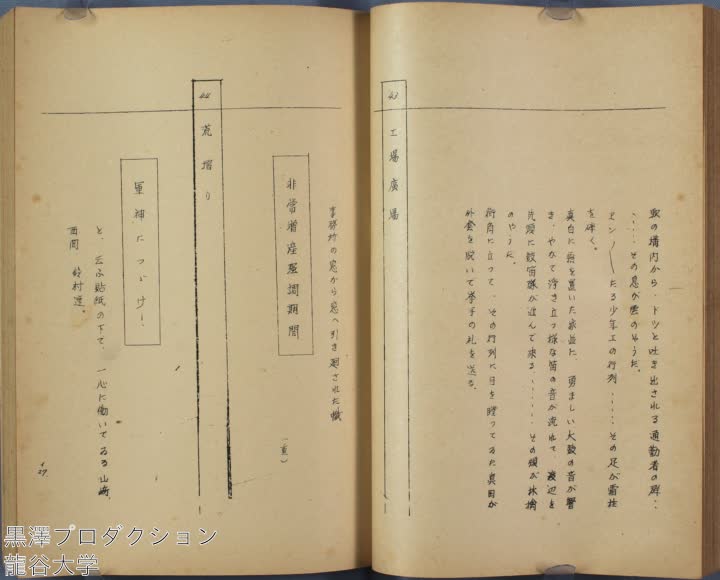 駅の構内から、ドッと吐き出される通勤者の群‥
‥‥その息が雲のやうだ。
エン／＼たる少年工の行列‥‥‥その足が霜柱
を砕く。
真白に霜を置いた家並に、勇ましい太鼓の音が響
き、やがて浮き立つ様な笛の音が流れて、渡辺を
先頭に鼓笛隊が進んで来る‥‥‥その頬が林檎
のやうだ。
街角に立って、その行列に目を瞠ってゐた真田が
外套を脱いで挙手の礼を送る。
43 工場廣場
事務所の窓から窓へ引き廻された幟
非常増産強調期間
（重）
44 荒摺り
軍神につゞけ！
と、云ふ貼紙の下で、一心に働いてゐる山崎、
西岡 鈴村達。
127
黒澤プロダクション
龍谷大学